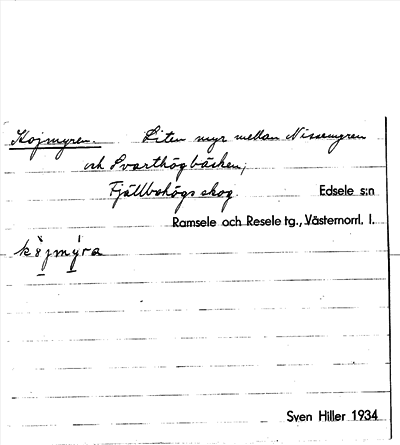 Kojmyren. Liten myr mellan Nissemyren
och Svarthögbäcken;
Fjällbohögs skog. Edsele s:n
Ramsele och Resele tg., Västernorrl. l.
kòjmýra
Sven Hiller 1934